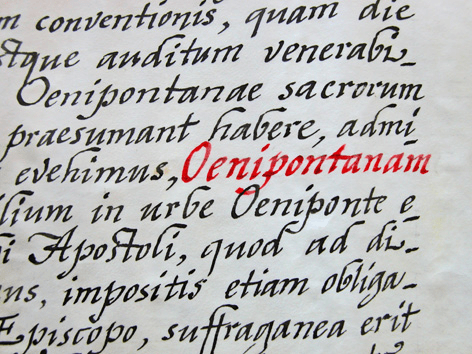 m conventionis, quam die
sque auditum venerabi-
Oenipontanae sacrorum
praesumant habere, admi
evehimus, Oenipontanam
lium in urbe Oeniponte e
i Apostoli, quod ad di-
us, impositis etiam obliga-
Episcopo, suffraganea erit